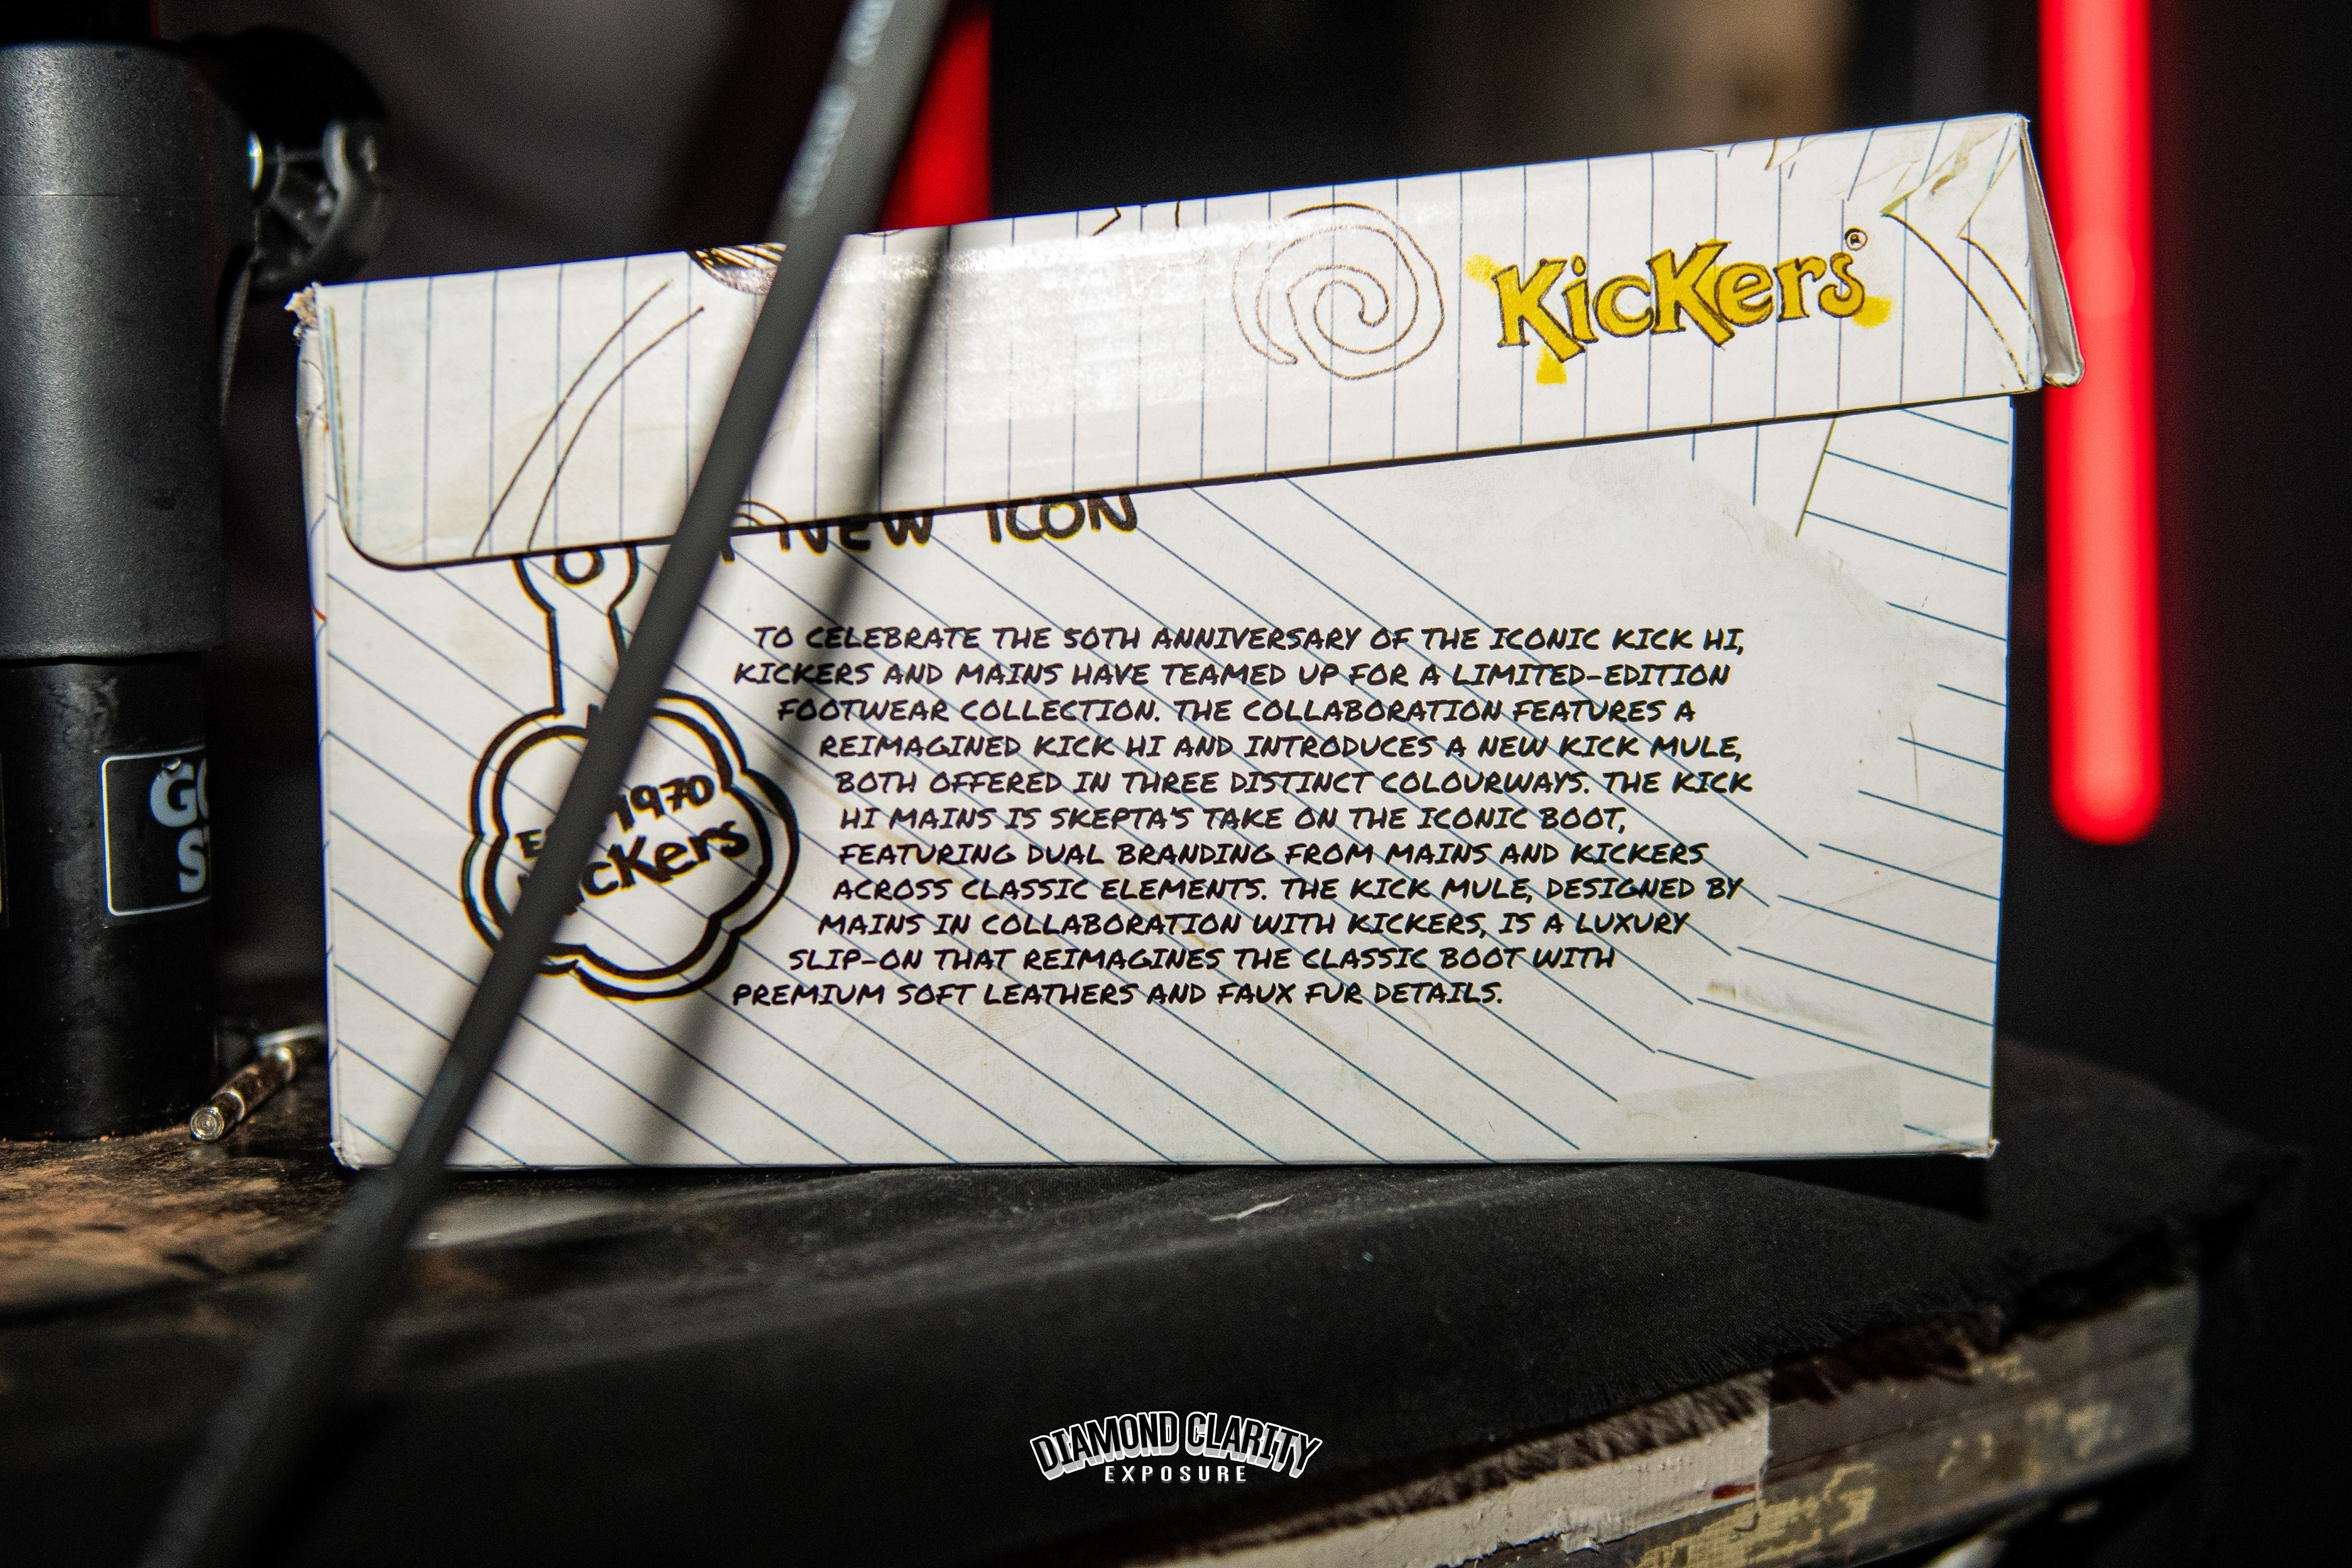 KicKers®
NEW ICON
TO CELEBRATE THE 50TH ANNIVERSARY OF THE ICONIC KICK HI,
KICKERS AND MAINS HAVE TEAMED UP FOR A LIMITED-EDITION
FOOTWEAR COLLECTION. THE COLLABORATION FEATURES A
REIMAGINED KICK HI AND INTRODUCES A NEW KICK MULE,
BOTH OFFERED IN THREE DISTINCT COLOURWAYS. THE KICK
HI MAINS IS SKEPTA'S TAKE ON THE ICONIC BOOT,
FEATURING DUAL BRANDING FROM MAINS AND KICKERS
ACROSS CLASSIC ELEMENTS. THE KICK MULE, DESIGNED BY
MAINS IN COLLABORATION WITH KICKERS, IS A LUXURY
SLIP-ON THAT REIMAGINES THE CLASSIC BOOT WITH
PREMIUM SOFT LEATHERS AND FAUX FUR DETAILS.
1970
KicKers
DIAMOND CLARITY
EXPOSURE